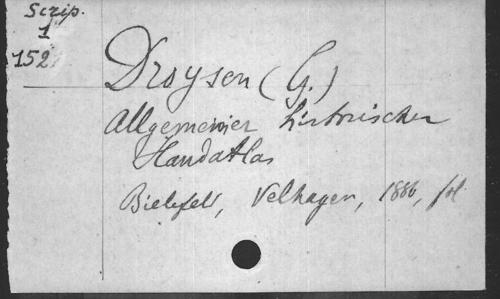 Scrip.
1
152
Droysen (G.)
Allgemeiner historischer
Handatlas
Bielefeld, Velhagen, 1886, fol.